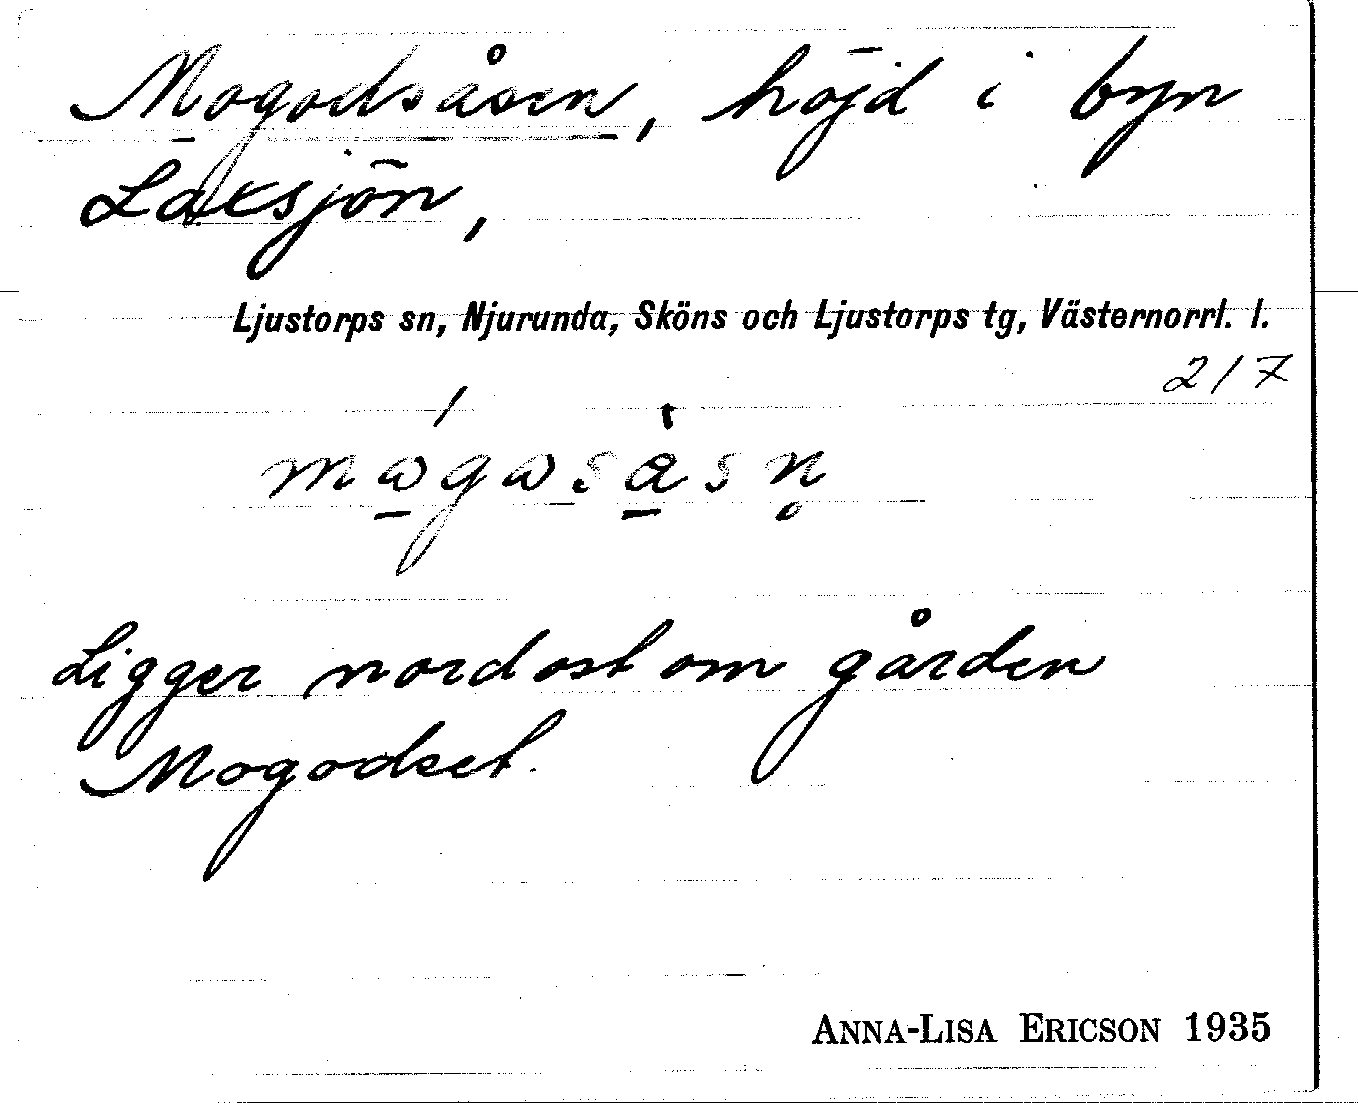 Mogodsåsen, höjd i byn
Laxsjön,
Ljustorps sn, Njurunda, Sköns och Ljustorps tg, Västernorrl. l.
217
Ligger nordost om gården
Mogodset.
ANNA-LISA ERICSON 1935